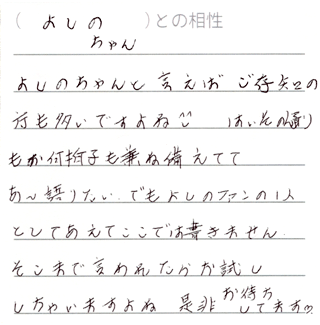 ( よしの )との相性
ちゃん
よしのちゃんと言えば ご存知の
方も多いですよね はいその通り
もか何拍子も兼ね備えてて
あ〜語りたい、でもよしのファンの1人
としてあえてここでは書きません
そこまで言われたらお試し
しちゃいますよね 是非 お待ち
してます♡